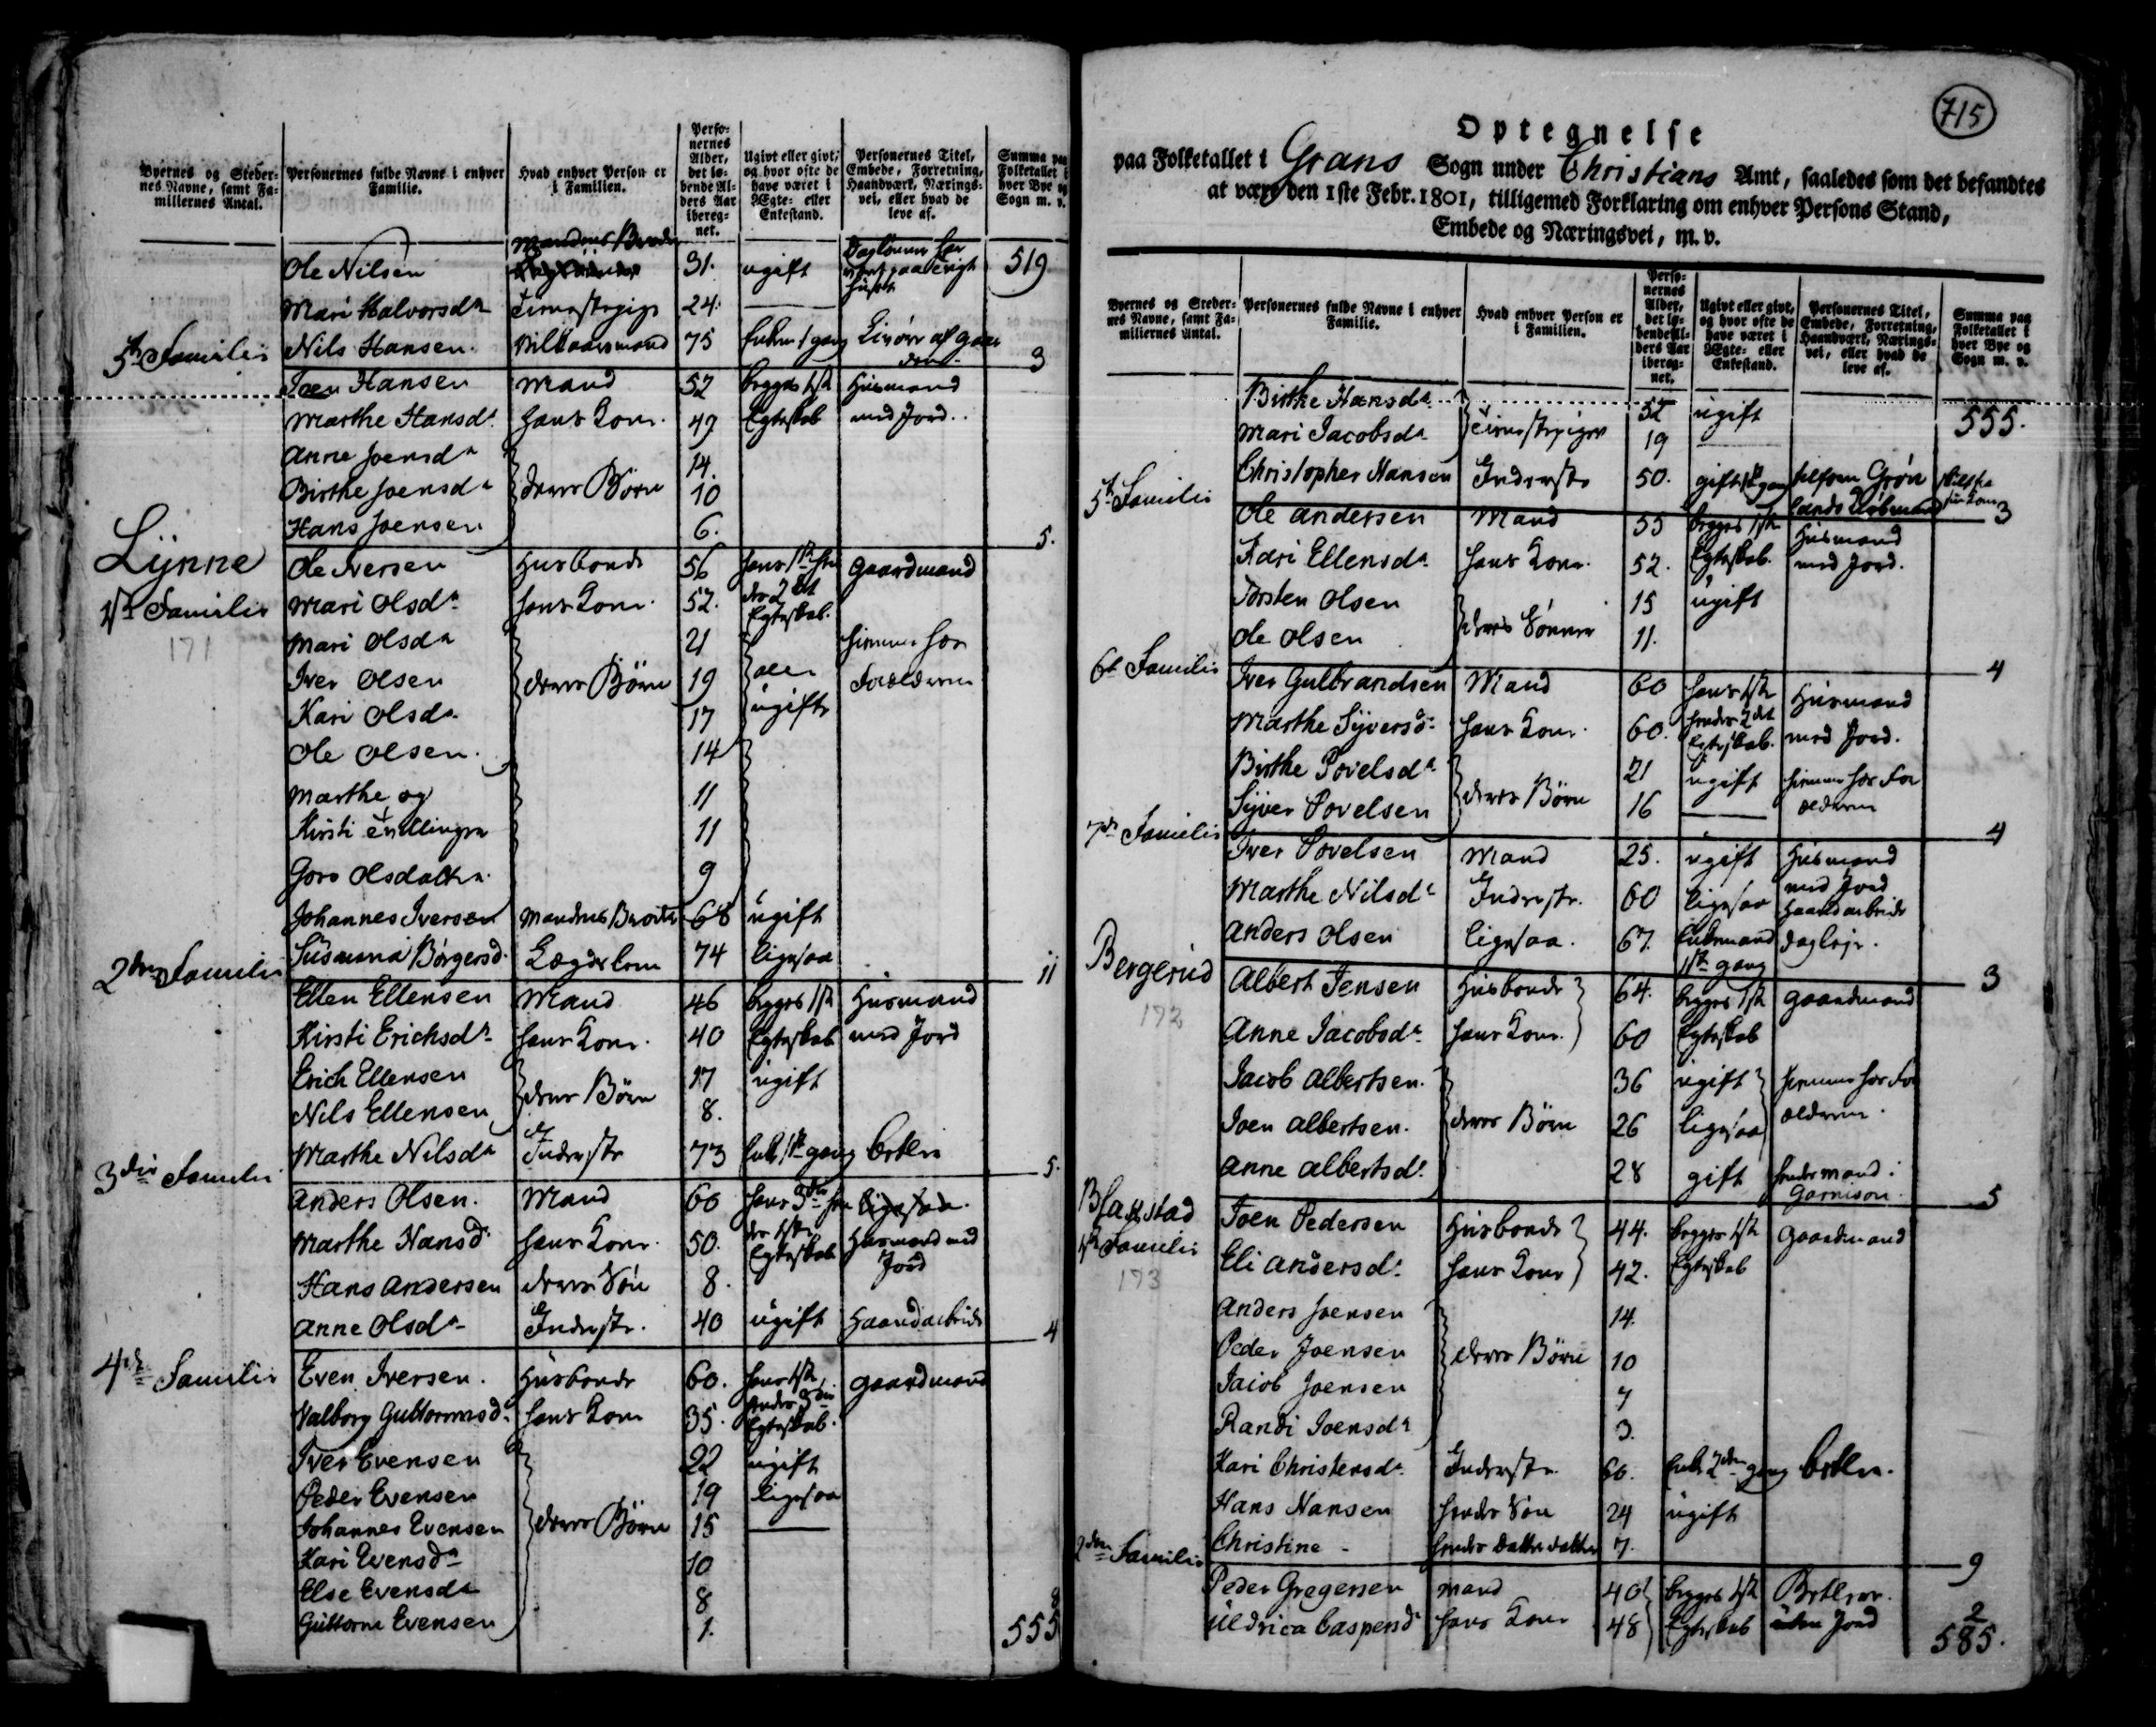 Byernes og Steder-
nes Navne, samt Fa-
miliernes Antal.
Personernes fulde Navne i enhver
Familie.
Hvad enhver Person er
i Familien.
Perso-
nernes
Alder,
det lø-
bende Al-
ders Aar
ibereg-
net.
Ugivt eller givt,
og hvor ofte de
have været i
Ægte- eller
Enkestand.
Personernes Titel,
Embede, Forretning,
Haandværk, Nærings-
vei, eller hvad de
leve af.
Summa paa
Folketallet i
hver Bye og
Sogn m. v.
Ole Nilsen Mandens 31. ugift 519
Mari Halvorsdr Tienestepige 24.
5te Familie Nils Hansen Vilkaarsmand 75 3
Joen Hansen Mand 52 begges 1ste Huusmand
Marthe Hansdr hans Kone 49 Egteskab med Jord.
Anne Joensdr 14.
Birthe Joensdr deres Børn 10
Hans Joensen 6. 5.
Lynne Ole Iversen Husbonde 56 Gaardmand
1ste Familie Mari Olsdr hans Kone 52. Egteskab.
171 Mari Olsdr 21 hiemme hos
Iver Olsen deres Børn 19 alle Forældrene
Kari Olsdr 17 ugifte
Ole Olsen 14
Marthe og 11
Kirsti Tvillinger 11
Goro Olsdatter 9
Johannes Iversen Mandens Broder 68 ugift
Susanna Børgersd. Lægdslem 74 ligesaa 11
2den Familie Ellen Ellensen Mand 46 begges 1ste Huusmand
Kirsti Erichsdr hans Kone 40 Egteskab med Jord
Erich Ellensen 17 ugift
Nils Ellensen deres Børn 8.
Marthe Nilsdr Inderste 73 Enke 1ste gang betler 5.
3die Familie Anders Olsen Mand 60
Marthe Hansd. hans Kone 50. Egteskab Huusmand med
Jord
Hans Andersen deres Søn 8.
Anne Olsdr Inderste 40 ugift Haandarbeide 4
4de Familie Even Iversen Husbonde 60. hans 1ste Gaardmand
Valborg Guttormsd. hans Kone 35. Egteskab.
Iver Evensen 22 ugift
Peder Evensen 19 ligesaa
Johannes Evensen deres Børn 15
Kari Evensdr 10
Else Evensdr 8
Guttorm Evensen 1. 8
555
715
Optegnelse
paa Folketallet i Grans Sogn under Christians Amt, saaledes som det befandtes
at være den 1ste Febr. 1801, tilligemed Forklaring om enhver Persons Stand,
Embede og Næringsvei, m. v.
Byernes og Steder-
nes Navne, samt Fa-
miliernes Antal.
Personernes fulde Navne i enhver
Familie.
Hvad enhver Person er
i Familien.
Perso-
nernes
Alder,
det lø-
bende Al-
ders Aar
ibereg-
net.
Ugivt eller givt,
og hvor ofte de
have været i
Ægte- eller
Enkestand.
Personernes Titel,
Embede, Forretning,
Haandværk, Nærings-
vei, eller hvad de
leve af.
Summa paa
Folketallet i
hver Bye og
Sogn m. v.
Birthe Hansdr 52 ugift 555.
Mari Jacobsdr Tienestepiger 19
Christopher Hansen Inderste 50. gift 1ste gang 3
5te Familie Ole Andersen Mand 55 begges 1ste Huusmand
Kari Ellensdr hans Kone 52. Egteskab. med Jord.
Torsten Olsen 15 ugift
Ole Olsen deres Sønner 11. 4
6te Familie Iver Gulbrandsen Mand 60 hans 1ste Huusmand
Marthe Syversd. hans Kone 60. hendes 2det Egteskab. med Jord.
Birthe Povelsdr 21 ugift hiemme hos For
Syver Povelsen deres Børn 16 ældrene 4
7de Familie Iver Povelsen Mand 25. ugift Huusmand
med Jord
Marthe Nilsdr Inderste 60 ligesaa Haandarbeide
Anders Olsen ligesaa. 67. Enkemand 1ste gang dagleje. 3
Bergerud Albert Jensen Husbonde 64. begges 1ste Gaardmand
172 Anne Jacobsdr hans Kone 60 Egteskab
Jacob Albertsen 36 ugift hiemme hos For
Joen Albertsen deres Børn 26 ligesaa ældrene.
Anne Albertsdr 28 gift hendes mand i
Garnison. 5
Blagstad Joen Pedersen Husbonde 44. begges 1ste Gaardmand
1ste Familie Eli Andersdr hans Kone 42. Egteskab
173 Anders Joensen 14.
Peder Joensen deres Børn 10
Jacob Joensen 7
Randi Joensdr 3.
Kari Christensdr Inderste 60. Enke 2den gang betler.
Hans Hansen hendes Søn 24 ugift
Christine hendes Datter datter 7. 9
2den Familie Peder Gregersen Mand 40 begges 1ste
Uldrica Caspersdr hans Kone 48 Egteskab uden Jord 2
585.